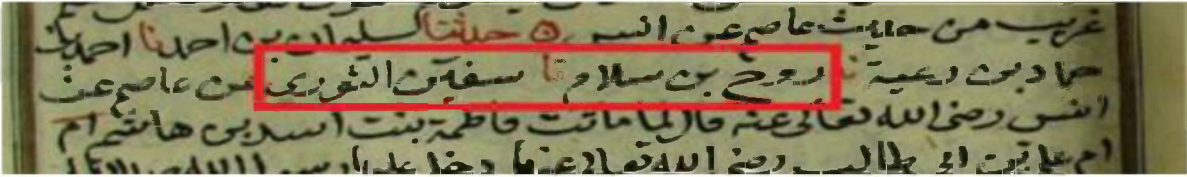 غريب من حديث عاصم عن انس ٥ حدثنا سليمان بن احمد نا احمد بن
حماد بن رعبة نا روح بن سلام نا سفين الثورى عن عاصم عن
انس رضى الله تعالى عنه قال لما ماتت فاطمة بنت اسد بن هاشم ام
ام على بن ابى طالب رضى الله تعالى عنها دخل عليها رسول الله